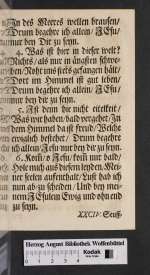 In des Meeres wellen brausen/
Drum begehre ich allein/ JEsu/
nur bey Dir zu seyn.
4. Was ist hier in dieser welt?
Nichts/ als nur in ängsten schwe-
ben/
Dort im Himmel ist gut leben/
Drum begehr ich allein/ JEsu/
nur bey dir zu seyn.
5. Ist denn hie nicht eitelkeit/
Was wir haben/ bald vergehet/ In
dem Himmel da ist freud/ Welche
ewiglich bestehet/ Drum begehre
ich allein/ JEsu/ nur bey dir zu seyn.
6. Komm/ o JEsu/ komm nur bald/
Hole mich aus diesem leyden/ Mei-
ner seelen auffenthalt/ Laß bald ich
nun ab-zu scheiden/ Und bey mei-
nem JEsulein Ewig und ohn end
zu seyn.
XXCIV. Seuff-
Herzog August Bibliothek Wolfenbüttel